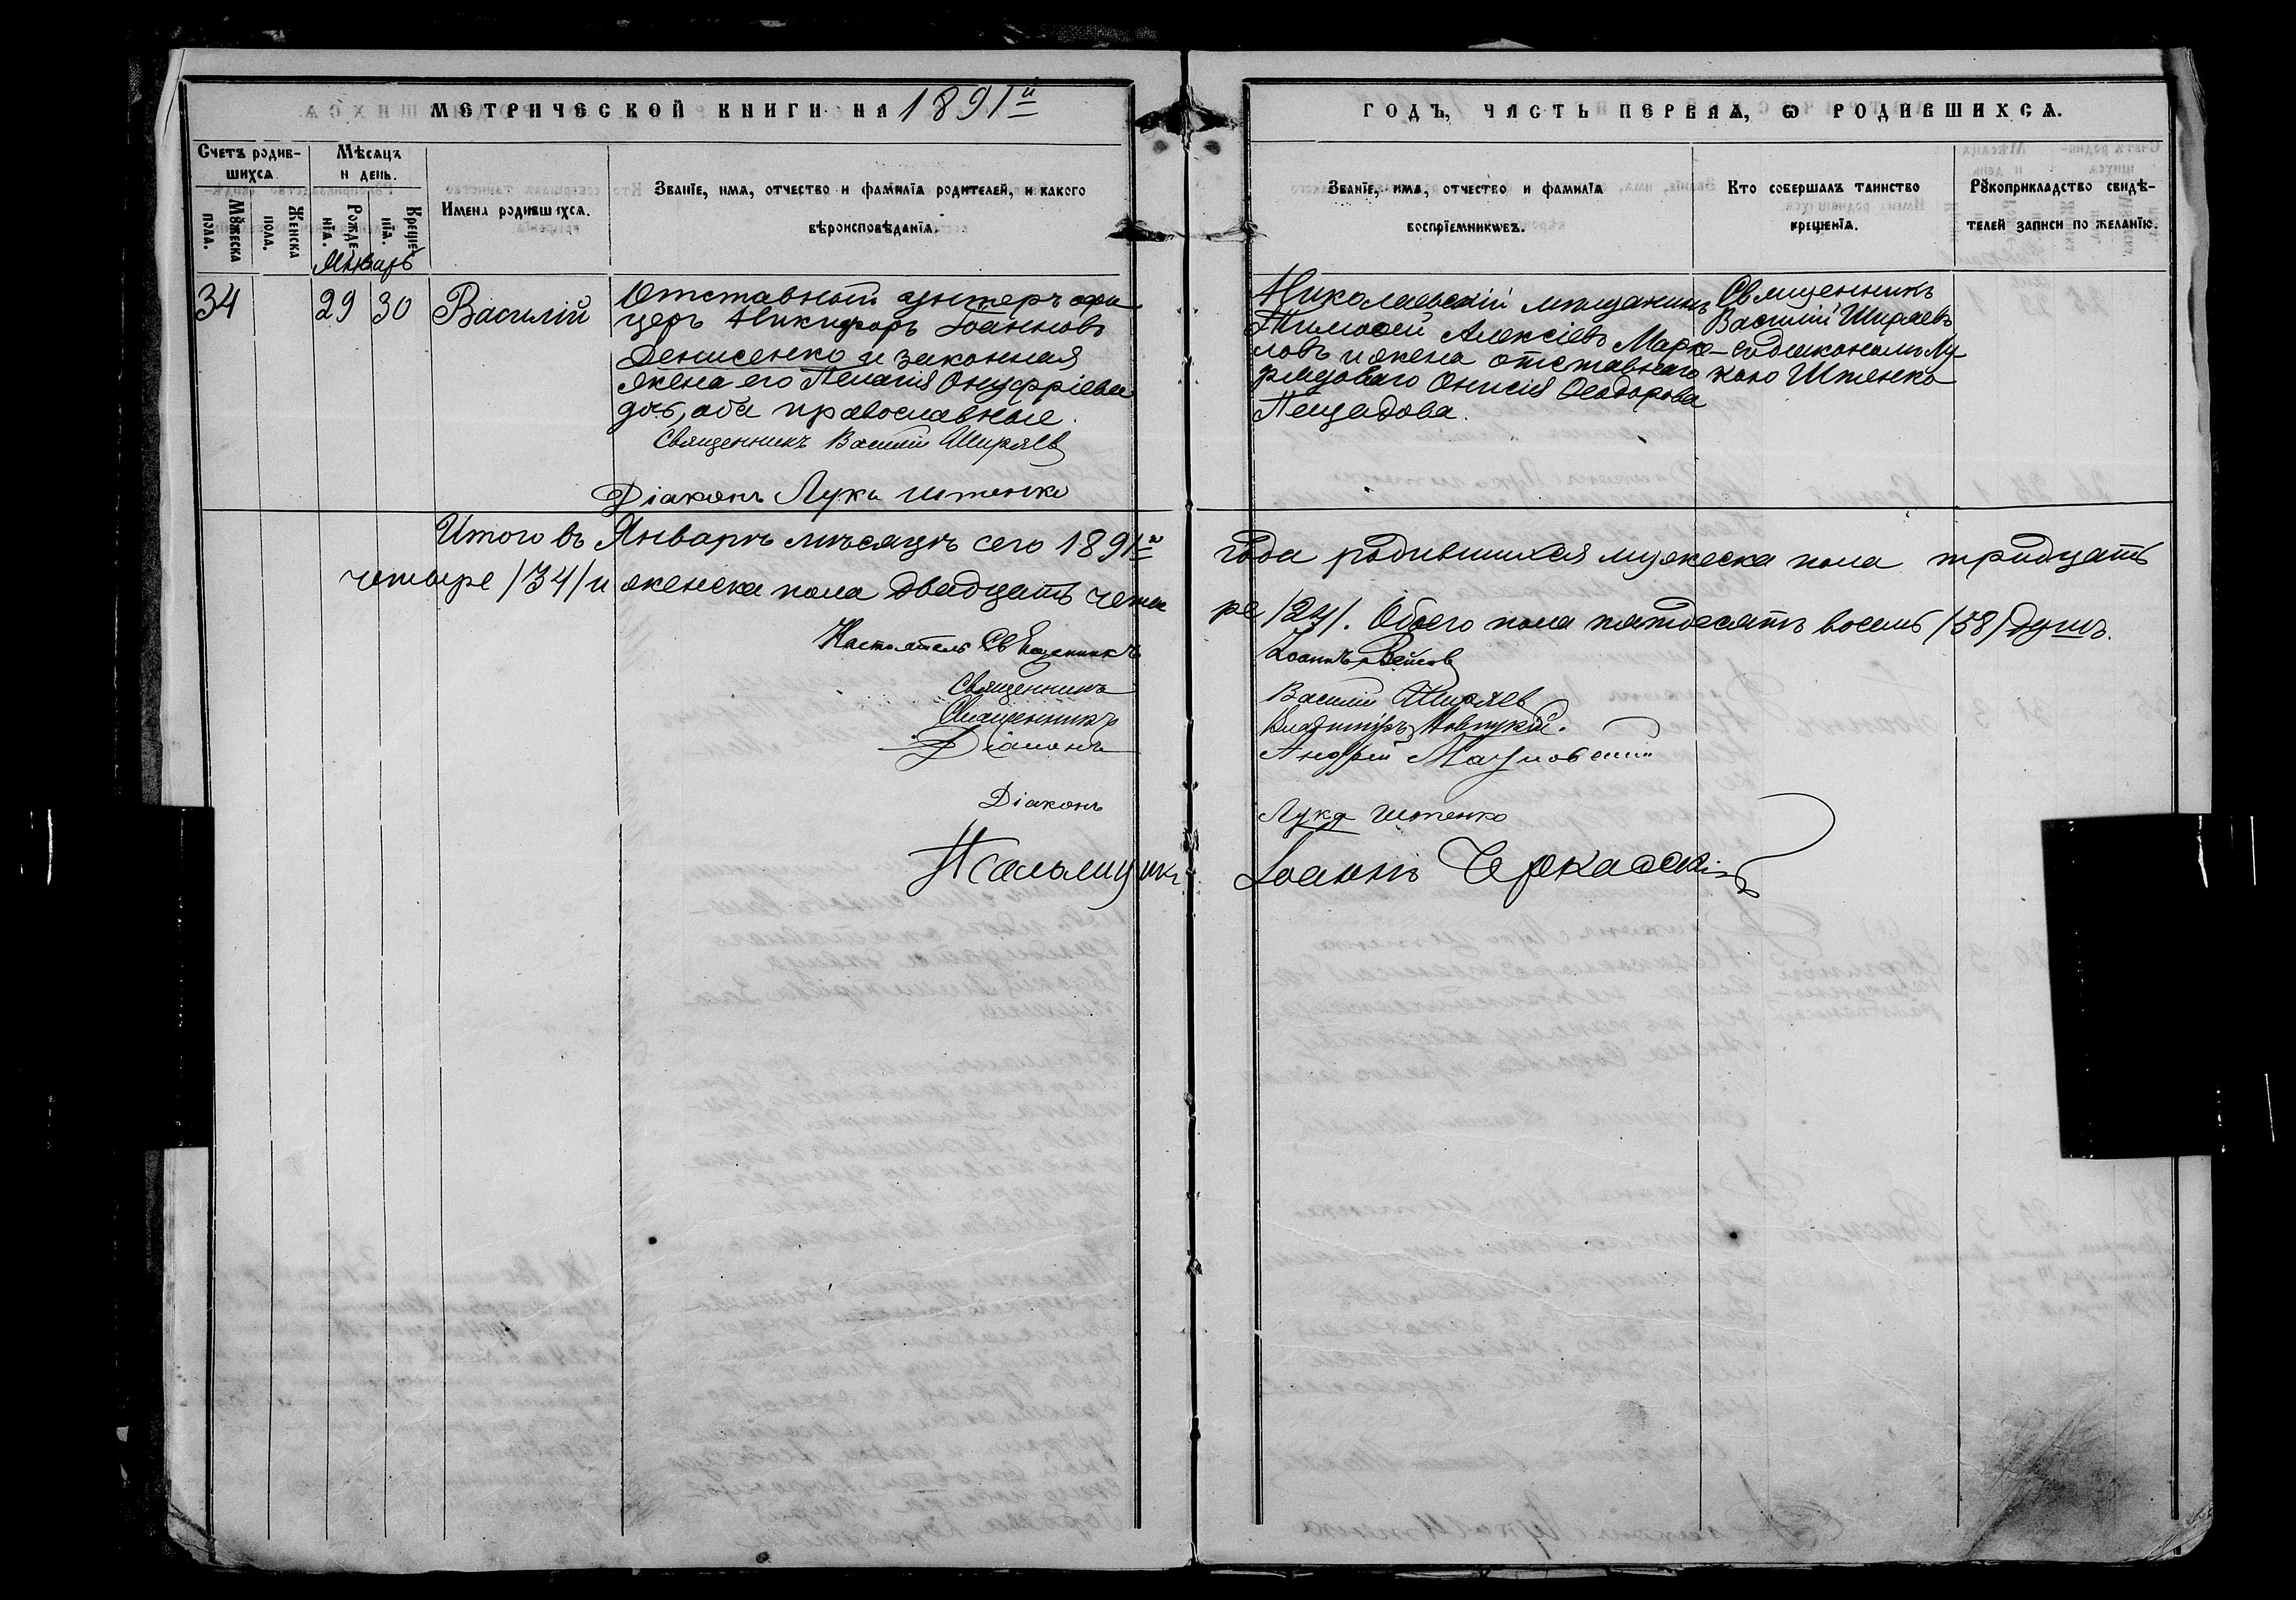 МЕТРИЧЕСКОЙ КНИГИ НА 1891й
ГОДЪ, ЧАСТЬ ПЕРВАѦ, Ѡ РОДИВШИХСѦ.
Счетъ родив-
шихсѧ.
Мѣсѧцъ
и день.
Мꙋжеска
пола.
Женска
пола.
Рожде-
нїѧ.
Креще-
нїѧ.
Имена родившихсѧ.
Званїе, имѧ, отчество и фамилїѧ родителей, и какого
вѣроисповѣданїѧ.
Званїе, имѧ, отчество и фамилїѧ
воспрїемникѡвъ.
Кто совершалъ таинство
крещенїѧ.
Рꙋкоприкладство свидѣ-
телей записи по желанїю.
Январь
34 29 30 Василій
Отставной унтеръ офи
церъ Никифоръ Іоанновъ
Денисенко и законная
жена его Пелагія Онуфріева
оба православные.
Священникъ Василій Ширяев
Діаконъ Лука Иштенко
Николаевскій мѣщанинъ
Тимофей Алексіевъ Марке-
ловъ и жена отставнаго
рядоваго Онисія Ѳеодорова
Священникъ
Василій Ширяевъ
съ діакономъ Лу
кою Иштенко
Итого въ Январѣ мѣсяцѣ сего 1891го
года родившихся мужеска пола тридцать
четыре /34/ и женска пола двадцать четы
ре /24/. Обоего пола пятьдесятъ восемь /58/ душъ.
Настоятель Священникъ
Іоаннъ
Священникъ
Василій Ширяев
Священникъ
Владиміръ
Діаконъ
Андрей
Діаконъ
Лука Иштенко
Псаломщикъ
Іоаннъ Черкасскій